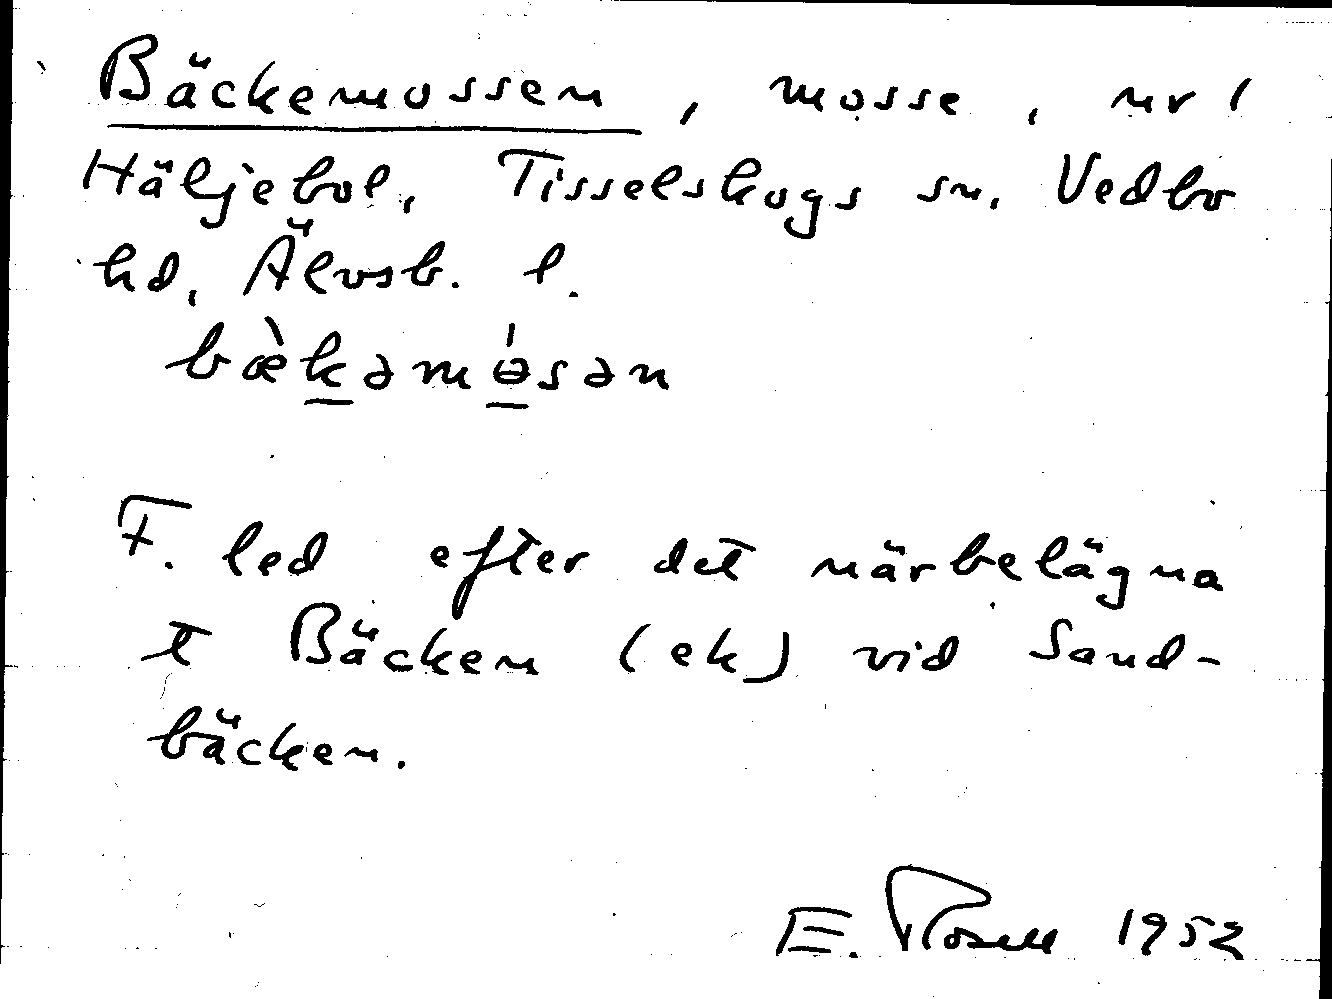 Bäckemossen, mosse, nr 1
Häljebol, Tisselskogs sn, Vedbo
hd, Älvsb. l.
bæ̀kəmɵ́sən
F. led efter det närbelägna
t Bäcken (ek) vid Sand-
bäcken.
E. Rosell 1952